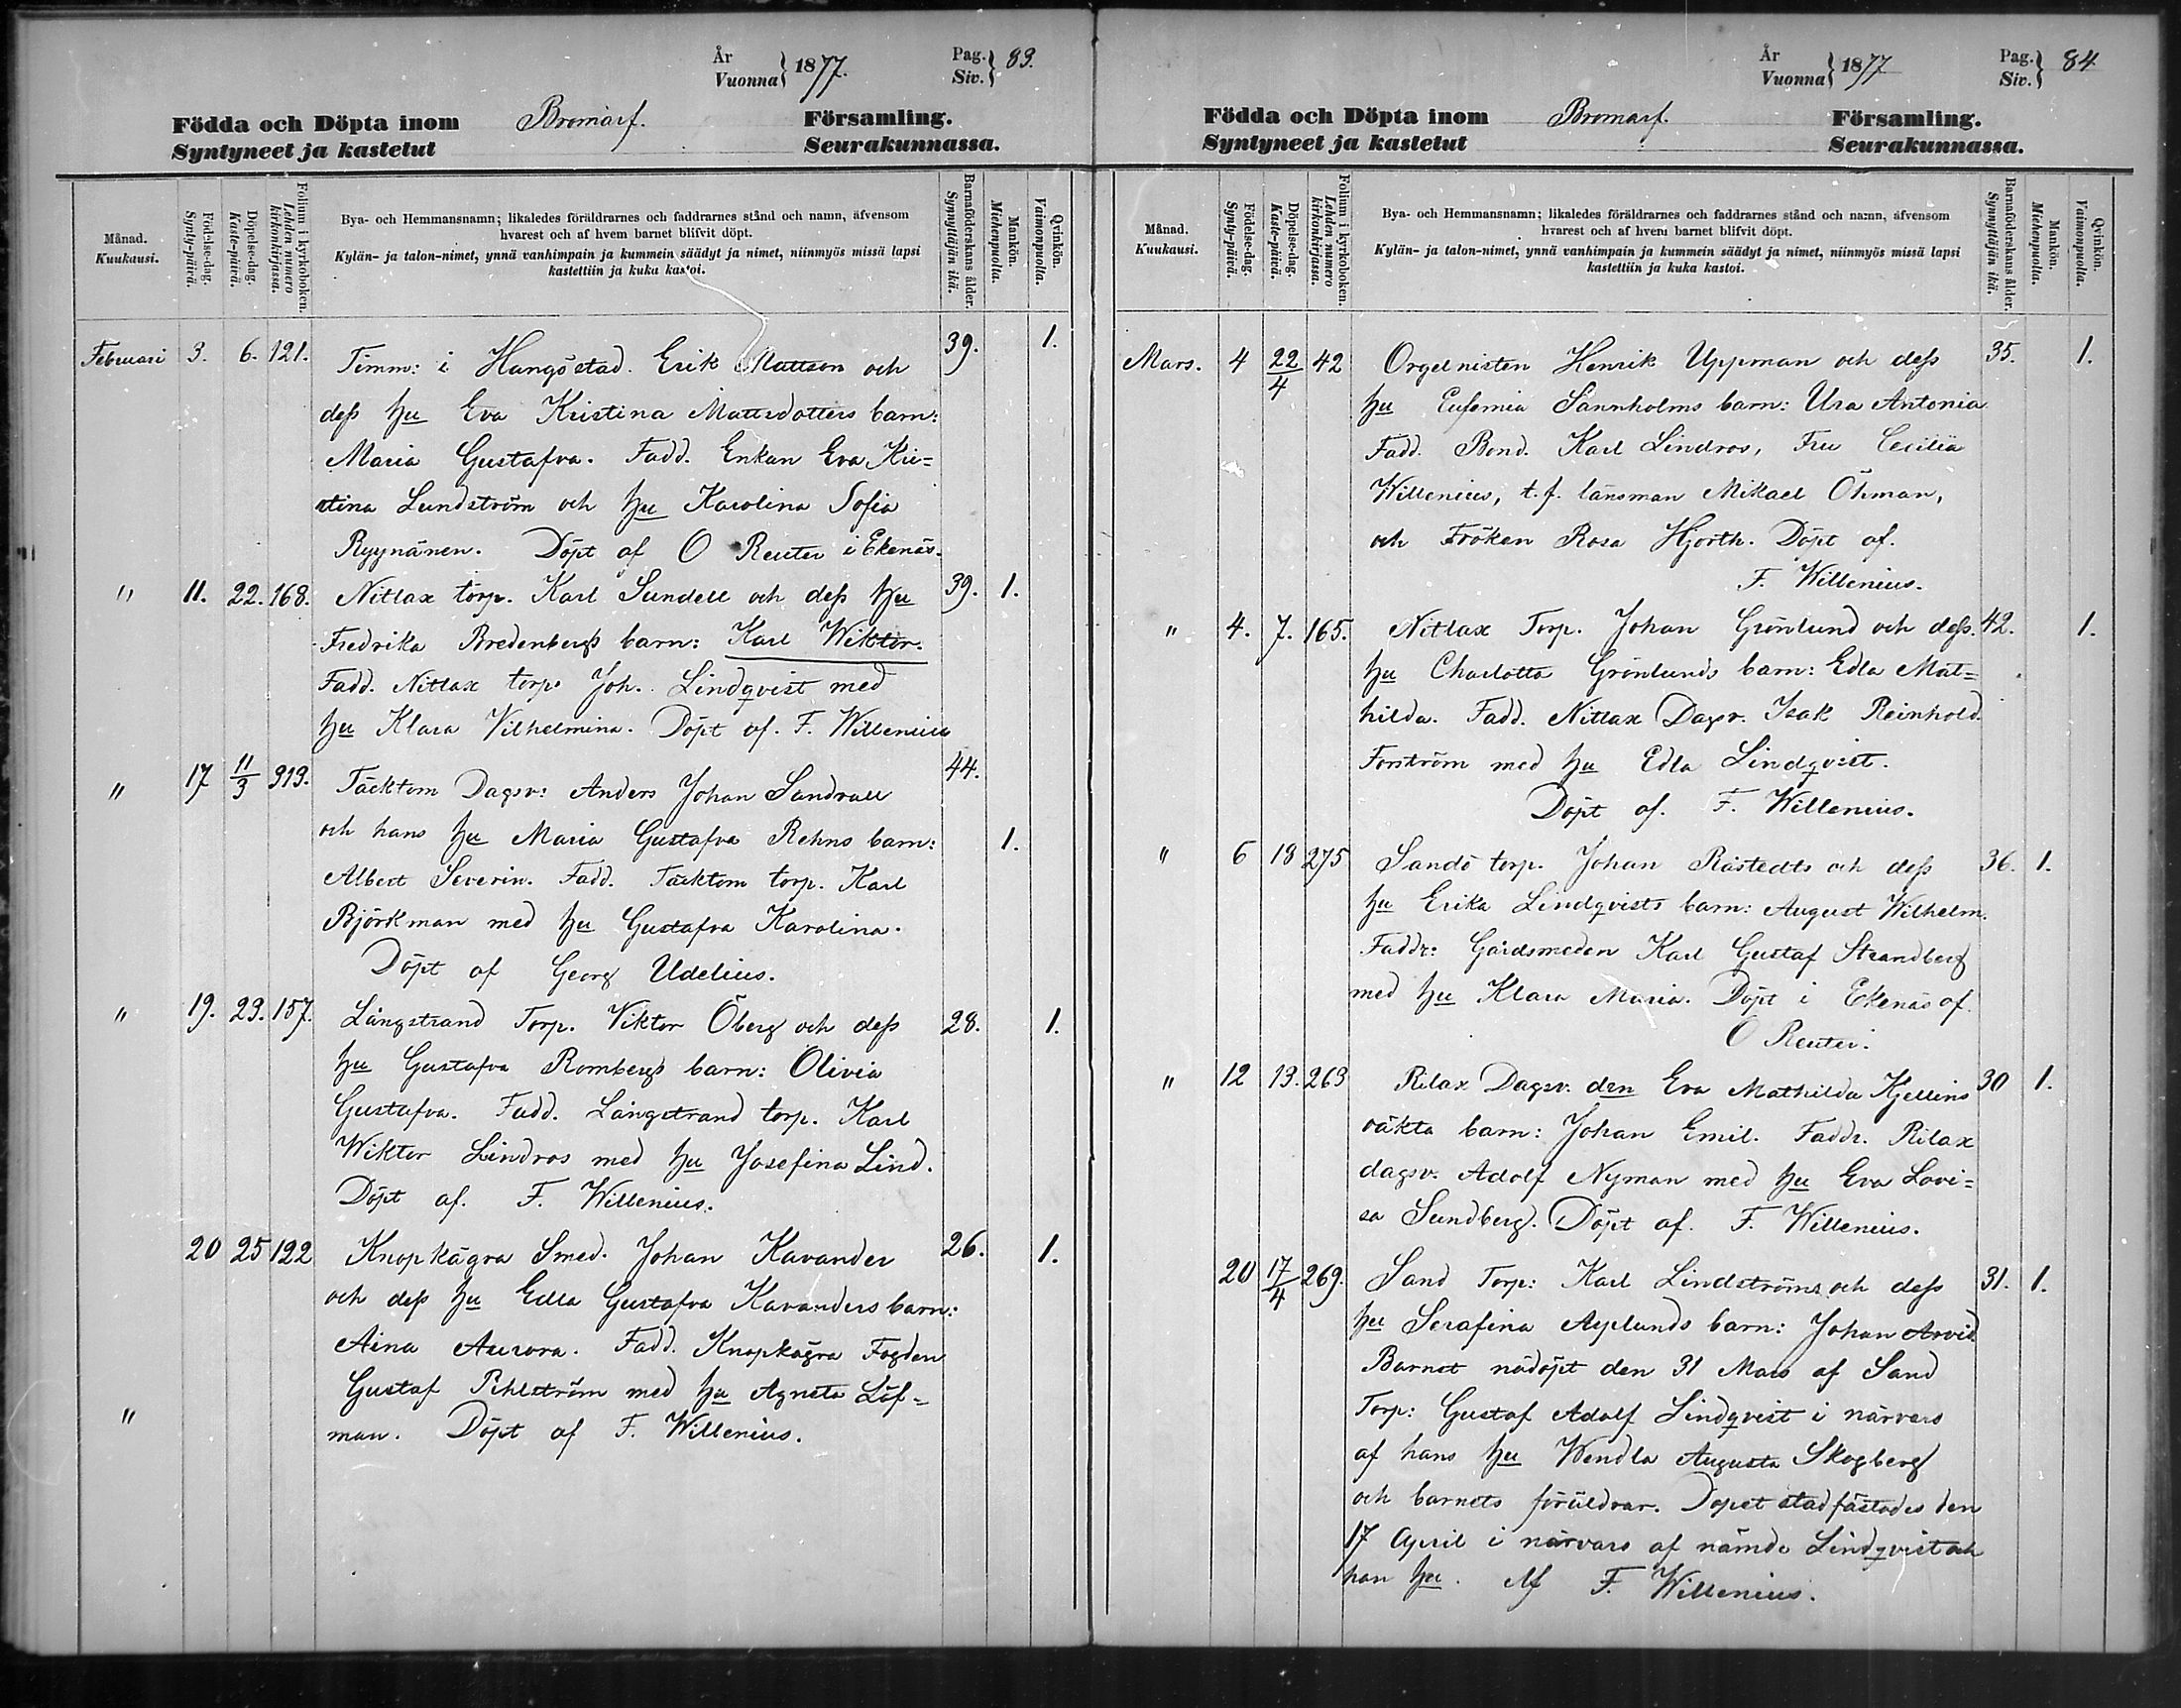 År
Vuonna } 1877.
Pag.
Siv. } 83.
Födda och Döpta inom Bromarf. Församling.
Syntyneet ja kastetut Seurakunnassa.
Månad.
Kuukausi.
Födelse-dag.
Synty-päivä.
Döpelse-dag.
Kaste-päivä.
Folium i kyrkoboken.
Lehden numero kirkonkirjassa.
Bya- och Hemmansnamn; likaledes föräldrarnes och faddrarnes stånd och namn, äfvensom
hvarest och af hvem barnet blifvit döpt.
Kylän- ja talon-nimet, ynnä vanhimpain ja kummein säädyt ja nimet, niinmyös missä lapsi
kastettiin ja kuka kastoi.
Barnaföderskans ålder.
Synnyttäjän ikä.
Mankön.
Miehenpuolta.
Qvinkön.
Vaimonpuolta.
Februari 3. 6. 121. Timm: i Hangöstad. Erik Mattson och 39. 1.
dess hu Eva Kristina Mattsdotters barn:
Maria Gustafva. Fadd. Enkan Eva Kri=
stina Lundström och hu Karolina Sofia
Ryynänen. Döpt af O Reuter i Ekenäs.
" 11. 22. 168. Nitlax torp. Karl Sundell och dess hu 39. 1.
Fredrika Bredenbergs barn: Karl Wiktor.
Fadd. Nitlax torp. Joh. Lindqvist med
hu Klara Vilhelmina. Döpt af. F. Willenius
" 17 11/3 313. Täcktom Dagsv: Anders Johan Sandvall 44.
och hans hu Maria Gustafva Rehns barn: 1.
Albert Severin. Fadd. Täcktom torp. Karl
Björkman med hu Gustafva Karolina.
Döpt af Georg Udelius.
" 19. 23. 157. Långstrand Torp. Viktor Öberg och dess 28. 1.
hu Gustafva Rombergs barn: Olivia
Gustafva. Fadd. Långstrand torp. Karl
Wiktor Lindros med hu Josefina Lind.
Döpt af. F. Willenius.
20 25 122 Knopkägra Smed. Johan Kavander 26. 1.
och dess hu Edla Gustafva Kavanders barn:
Aina Aurora. Fadd. Knopkägra Fogden
Gustaf Pihlström med hu Agneta Löf=
" man. Döpt af F. Willenius.
År
Vuonna } 1877
Pag.
Siv. } 84
Födda och Döpta inom Bromarf. Församling.
Syntyneet ja kastetut Seurakunnassa.
Månad.
Kuukausi.
Födelse-dag.
Synty-päivä.
Döpelse-dag.
Kaste-päivä.
Folium i kyrkoboken.
Lehden numero kirkonkirjassa.
Bya- och Hemmansnamn; likaledes föräldrarnes och faddrarnes stånd och namn, äfvensom
hvarest och af hvem barnet blifvit döpt.
Kylän- ja talon-nimet, ynnä vanhimpain ja kummein säädyt ja nimet, niinmyös missä lapsi
kastettiin ja kuka kastoi.
Barnaföderskans ålder.
Synnyttäjän ikä.
Mankön.
Miehenpuolta.
Qvinkön.
Vaimonpuolta.
Mars. 4 22/4 42 Orgelnisten Henrik Uppman och dess 35. 1.
hu Eufemia Sannholms barn: Ura Antonia
Fadd. Bond. Karl Lindros, Fru Cecilia
Willenius, t.f. länsman Mikael Öhman,
och Fröken Rosa Hjorth. Döpt af.
F. Willenius.
" 4. 7. 165. Nitlax Torp. Johan Grönlund och dess. 42. 1.
hu Charlotta Grönlunds barn: Edla Mat=
hilda. Fadd. Nitlax Dagsv. Isak Reinhold.
Forström med hu Edla Lindqvist.
Döpt af. F. Willenius.
" 6 18 275 Sandö torp. Johan Råstedts och dess 36. 1.
hu Erika Lindqvists barn: August Wilhelm.
Faddr: Gårdsmeden Karl Gustaf Strandberg
med hu Klara Maria. Döpt i Ekenäs af.
O Reuter.
" 12 13. 263 Rilax Dagsv. drn Eva Mathilda Kjellins 30 1.
oäkta barn: Johan Emil. Faddr. Rilax
dagsv. Adolf Nyman med hu Eva Lovi=
sa Sundberg. Döpt af. F. Willenius.
20 17/4 269. Sand Torp: Karl Lindströms och dess 31. 1.
hu Serafina Asplunds barn: Johan Arvid.
Barnet nödöpt den 31 Mars af Sand
Torp: Gustaf Adolf Lindqvist i närvaro
af hans hu Wendla Augusta Skogberg
och barnets föräldrar. Dopet stadfästades den
17 April i närvaro af nämde Lindqvist och
han hu. Af F. Willenius.